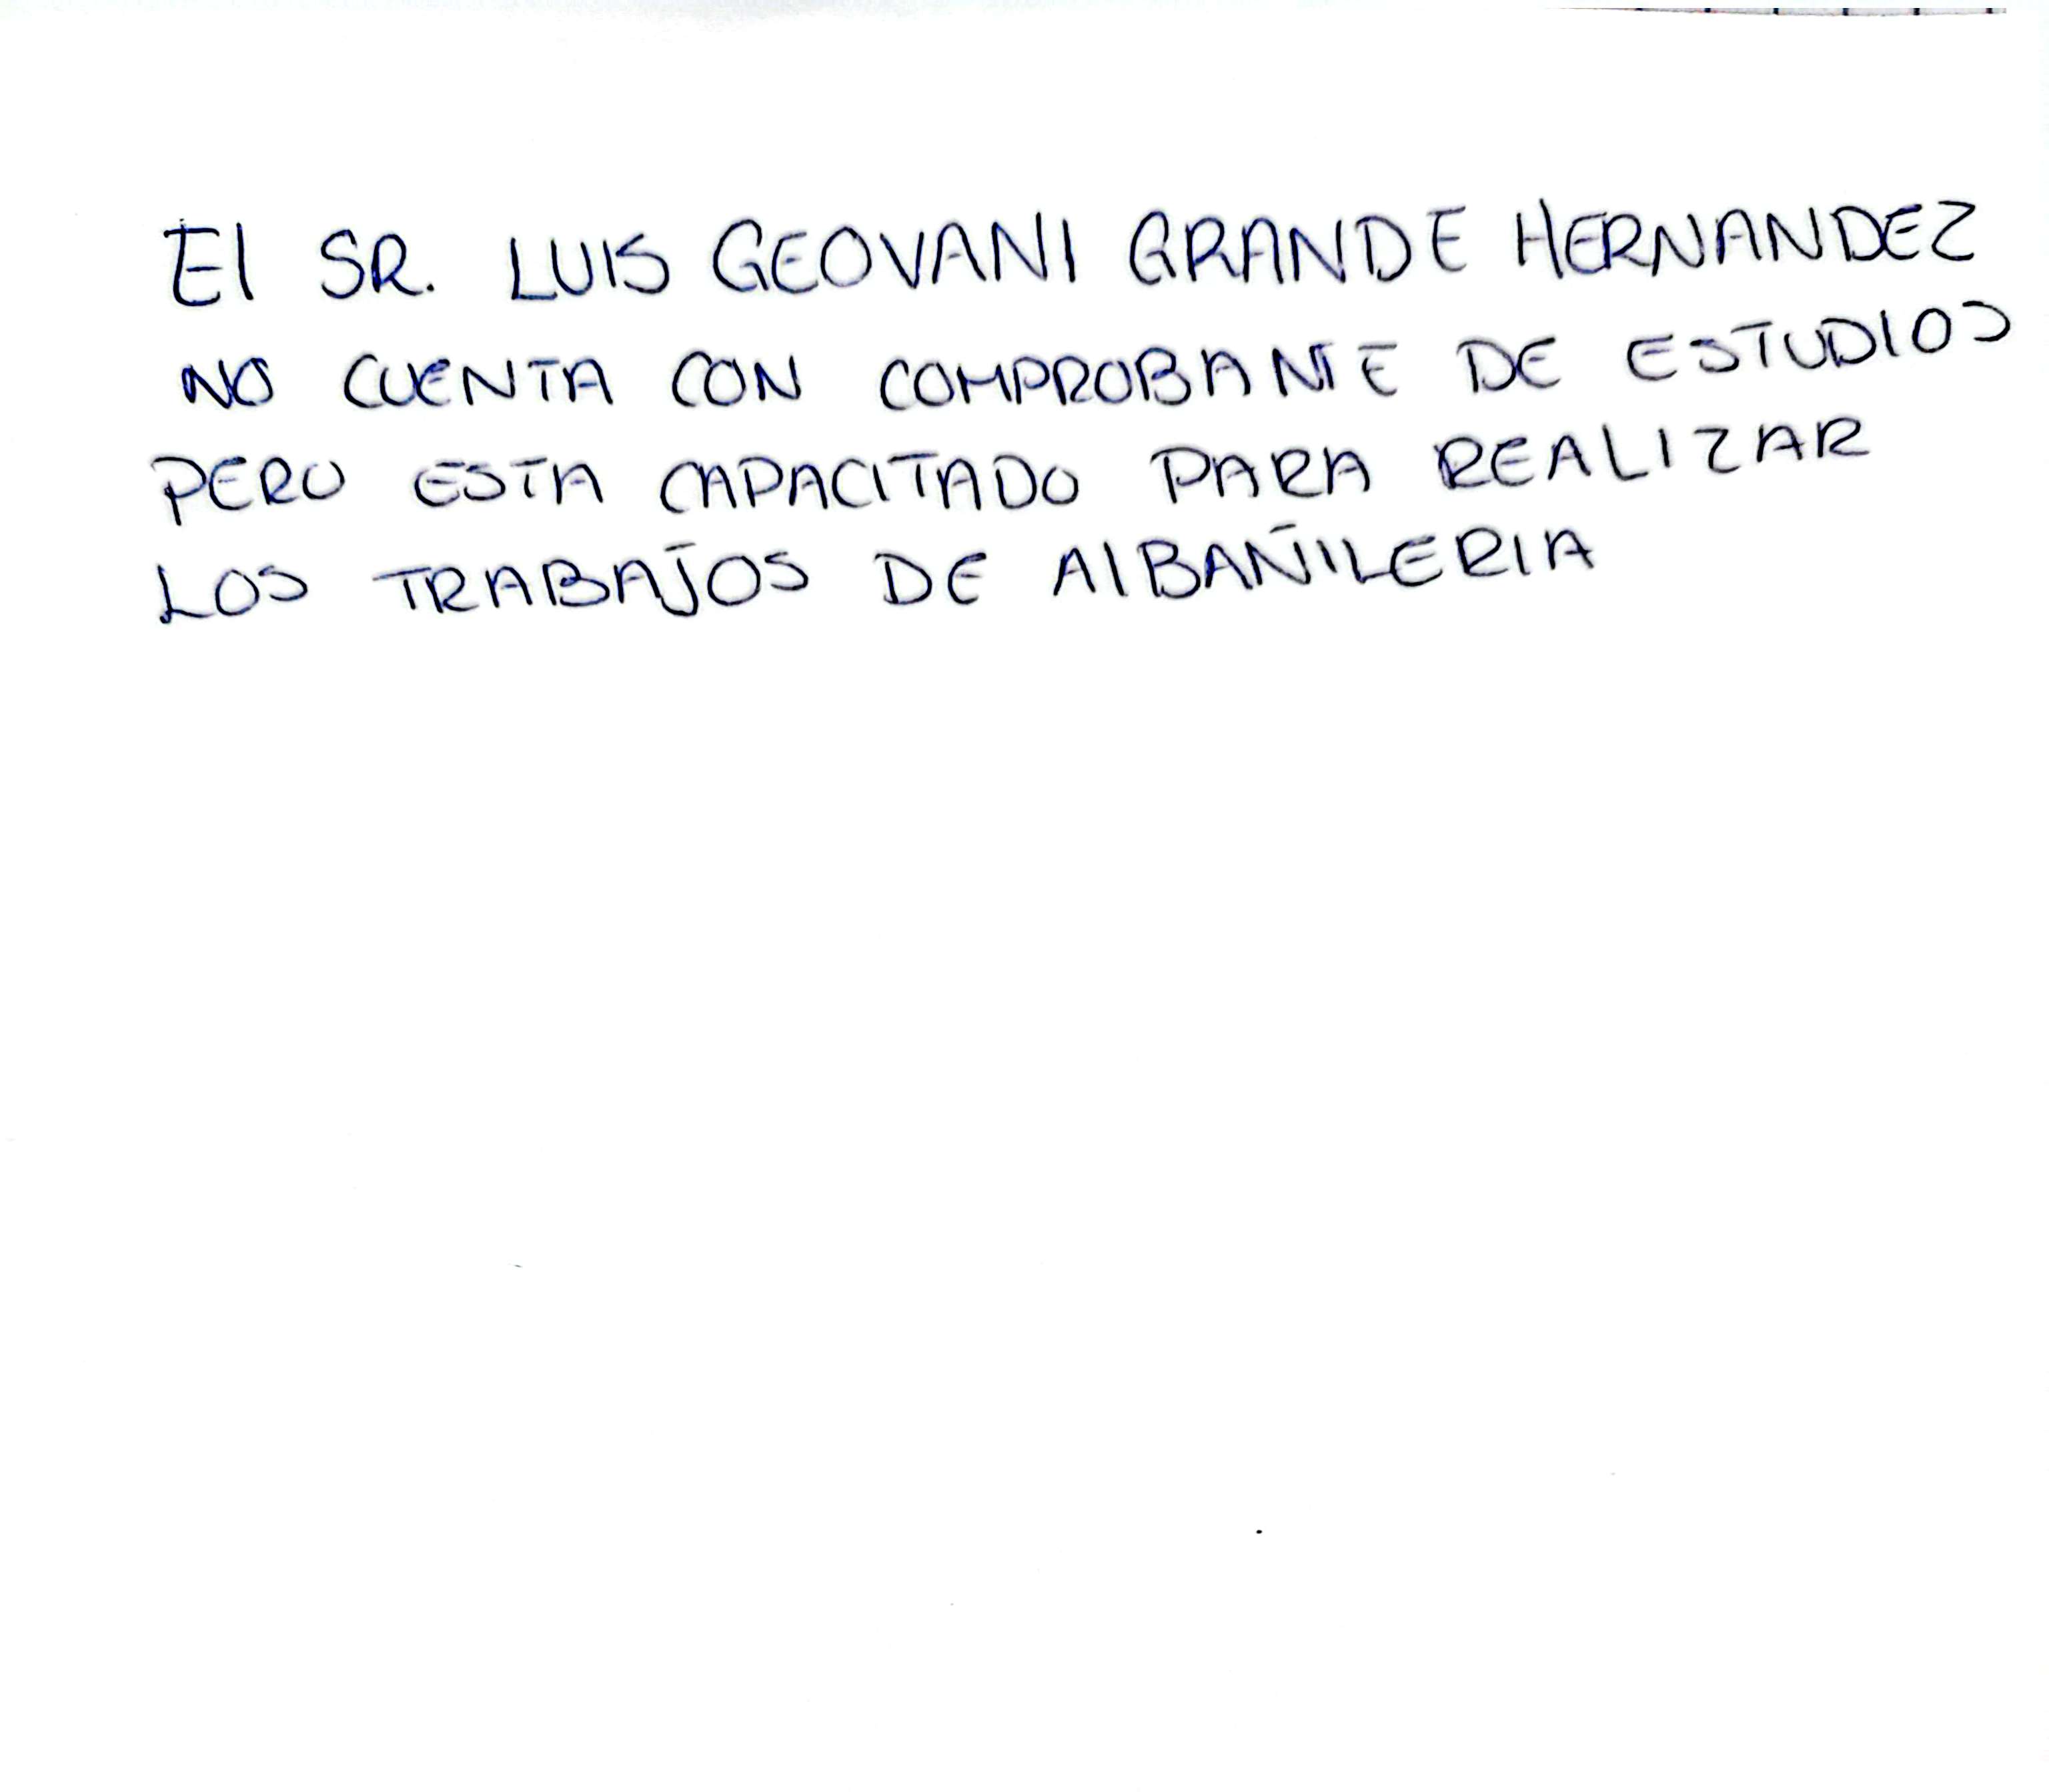 El SR. LUIS GEOVANI GRANDE HERNANDEZ
NO CUENTA CON COMPROBANTE DE ESTUDIOS
PERO ESTA CAPACITADO PARA REALIZAR
LOS TRABAJOS DE AlBAÑILERIA